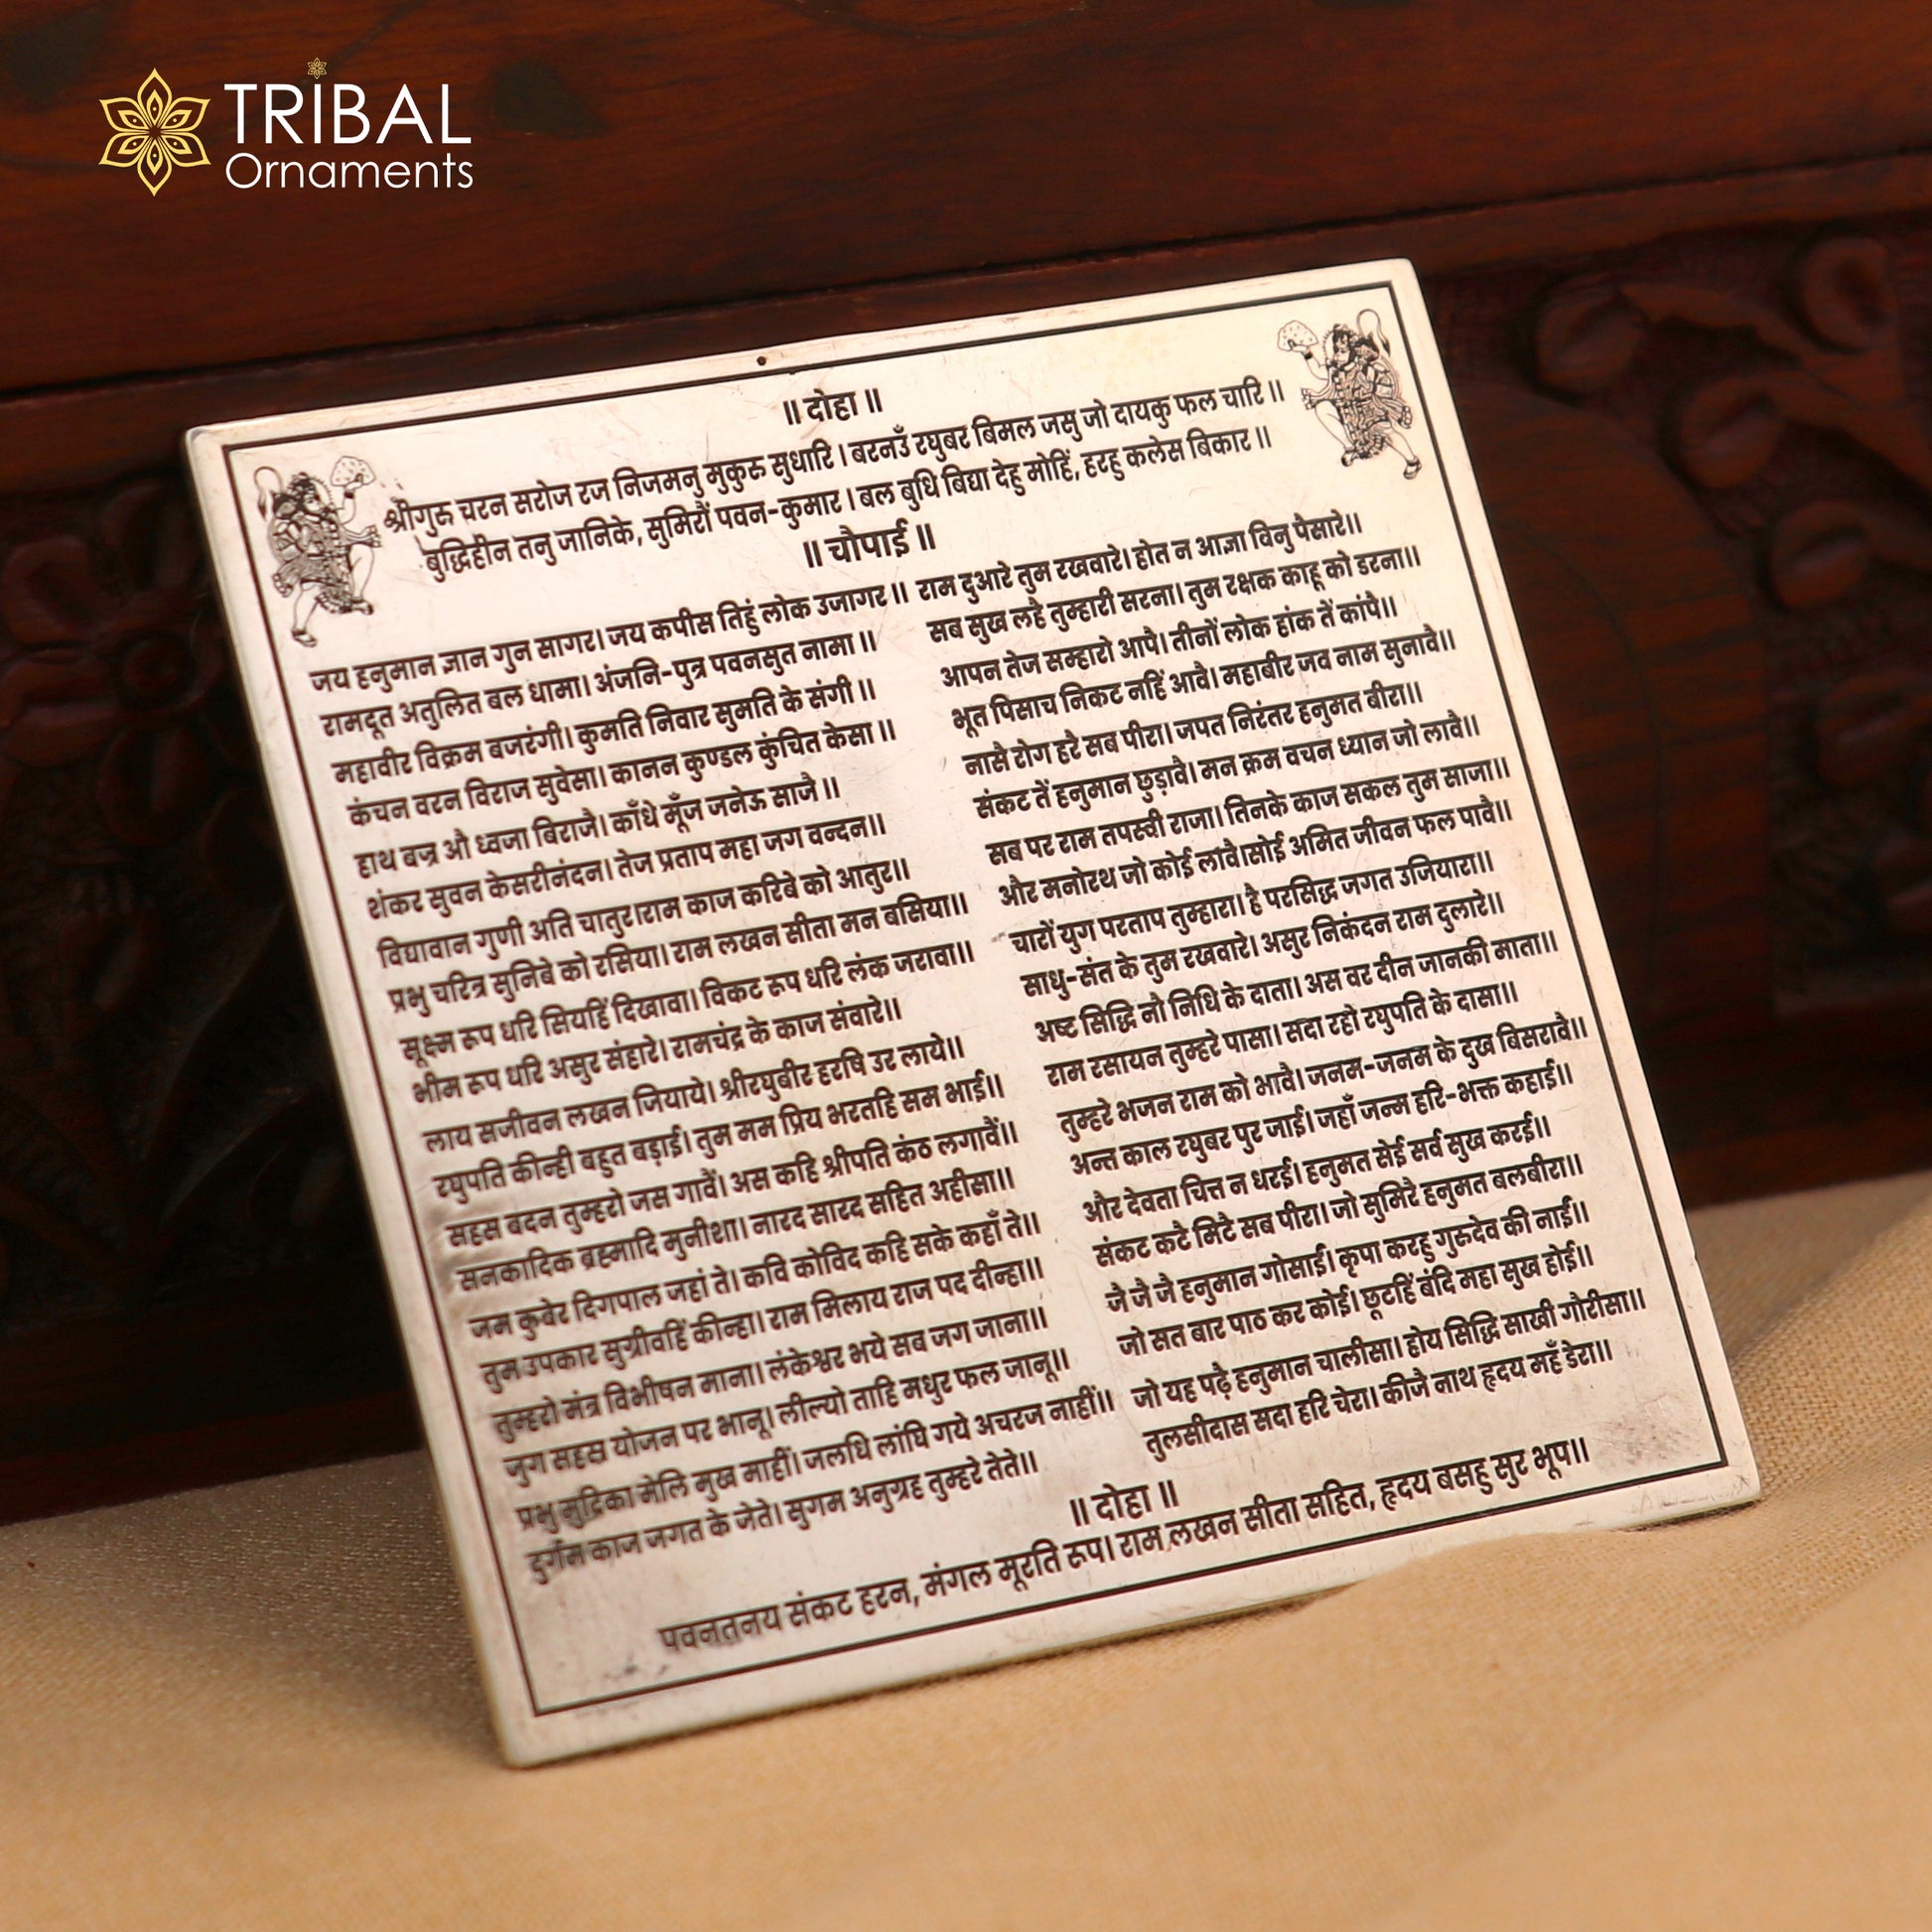 TRIBAL
Ornaments
॥ दोहा ॥
श्रीगुरु चरन सरोज रज निजमनु मुकुरु सुधारि । बरनउँ रघुबर बिमल जसु जो दायकु फल चारि ॥
बुद्धिहीन तनु जानिके, सुमिरौं पवन-कुमार । बल बुधि बिद्या देहु मोहिं, हरहु कलेस बिकार ॥
॥ चौपाई ॥
जय हनुमान ज्ञान गुन सागर। जय कपीस तिहुं लोक उजागर ॥
रामदूत अतुलित बल धामा। अंजनि-पुत्र पवनसुत नामा ॥
महावीर विक्रम बजरंगी। कुमति निवार सुमति के संगी ॥
कंचन वरन विराज सुवेसा। कानन कुण्डल कुंचित केसा ॥
हाथ बज्र औ ध्वजा बिराजै। काँधे मूँज जनेऊ साजै ॥
शंकर सुवन केसरीनंदन। तेज प्रताप महा जग वन्दन॥
विद्यावान गुणी अति चातुर।राम काज करिबे को आतुर॥
प्रभु चरित्र सुनिबे को रसिया। राम लखन सीता मन बसिया॥
सूक्ष्म रूप धरि सियहिं दिखावा। विकट रूप धरि लंक जरावा॥
भीम रूप धरि असुर संहारे। रामचंद्र के काज संवारे॥
लाय सजीवन लखन जियाये। श्रीरघुबीर हरषि उर लाये॥
रघुपति कीन्ही बहुत बड़ाई। तुम मम प्रिय भरतहि सम भाई॥
सहस बदन तुम्हरो जस गावैं। अस कहि श्रीपति कंठ लगावैं॥
सनकादिक ब्रह्मादि मुनीशा। नारद सारद सहित अहीसा॥
जम कुबेर दिगपाल जहां ते। कवि कोविद कहि सके कहाँ ते॥
तुम उपकार सुग्रीवहिं कीन्हा। राम मिलाय राज पद दीन्हा॥
तुम्हरो मंत्र विभीषन माना। लंकेश्वर भये सब जग जाना॥
जुग सहस्र योजन पर भानू। लील्यो ताहि मधुर फल जानू॥
प्रभु मुद्रिका मेलि मुख माहीं। जलधि लांघि गये अचरज नाहीं॥
दुर्गम काज जगत के जेते। सुगम अनुग्रह तुम्हरे तेते॥
राम दुआरे तुम रखवारे। होत न आज्ञा विनु पैसारे॥
सब सुख लहै तुम्हारी सरना। तुम रक्षक काहू को डरना॥
आपन तेज सम्हारो आपै। तीनों लोक हांक तें कांपै॥
भूत पिसाच निकट नहिं आवै। महाबीर जव नाम सुनावै॥
नासै रोग हरै सब पीरा। जपत निरंतर हनुमत बीरा॥
संकट तें हनुमान छुड़ावै। मन क्रम वचन ध्यान जो लावै॥
सब पर राम तपस्वी राजा। तिनके काज सकल तुम साजा॥
और मनोरथ जो कोई लावै।सोई अमित जीवन फल पावै॥
चारों युग परताप तुम्हारा। है परसिद्ध जगत उजियारा॥
साधु-संत के तुम रखवारे। असुर निकंदन राम दुलारे॥
अष्ट सिद्धि नौ निधि के दाता। अस वर दीन जानकी माता॥
राम रसायन तुम्हरे पासा। सदा रहो रघुपति के दासा॥
तुम्हरे भजन राम को भावै। जनम-जनम के दुख बिसरावै॥
अन्त काल रघुबर पुर जाई। जहाँ जन्म हरि-भक्त कहाई॥
और देवता चित्त न धरई। हनुमत सेई सर्व सुख करई॥
संकट कटै मिटै सब पीरा। जो सुमिरै हनुमत बलबीरा॥
जै जै जै हनुमान गोसाई। कृपा करहु गुरुदेव की नाई॥
जो सत बार पाठ कर कोई। छूटहिं बंदि महा सुख होई॥
जो यह पढ़ै हनुमान चालीसा। होय सिद्धि साखी गौरीसा॥
तुलसीदास सदा हरि चेरा। कीजै नाथ हृदय महँ डेरा॥
॥ दोहा ॥
पवनतनय संकट हरन, मंगल मूरति रूप। राम लखन सीता सहित, हृदय बसहु सुर भूप॥